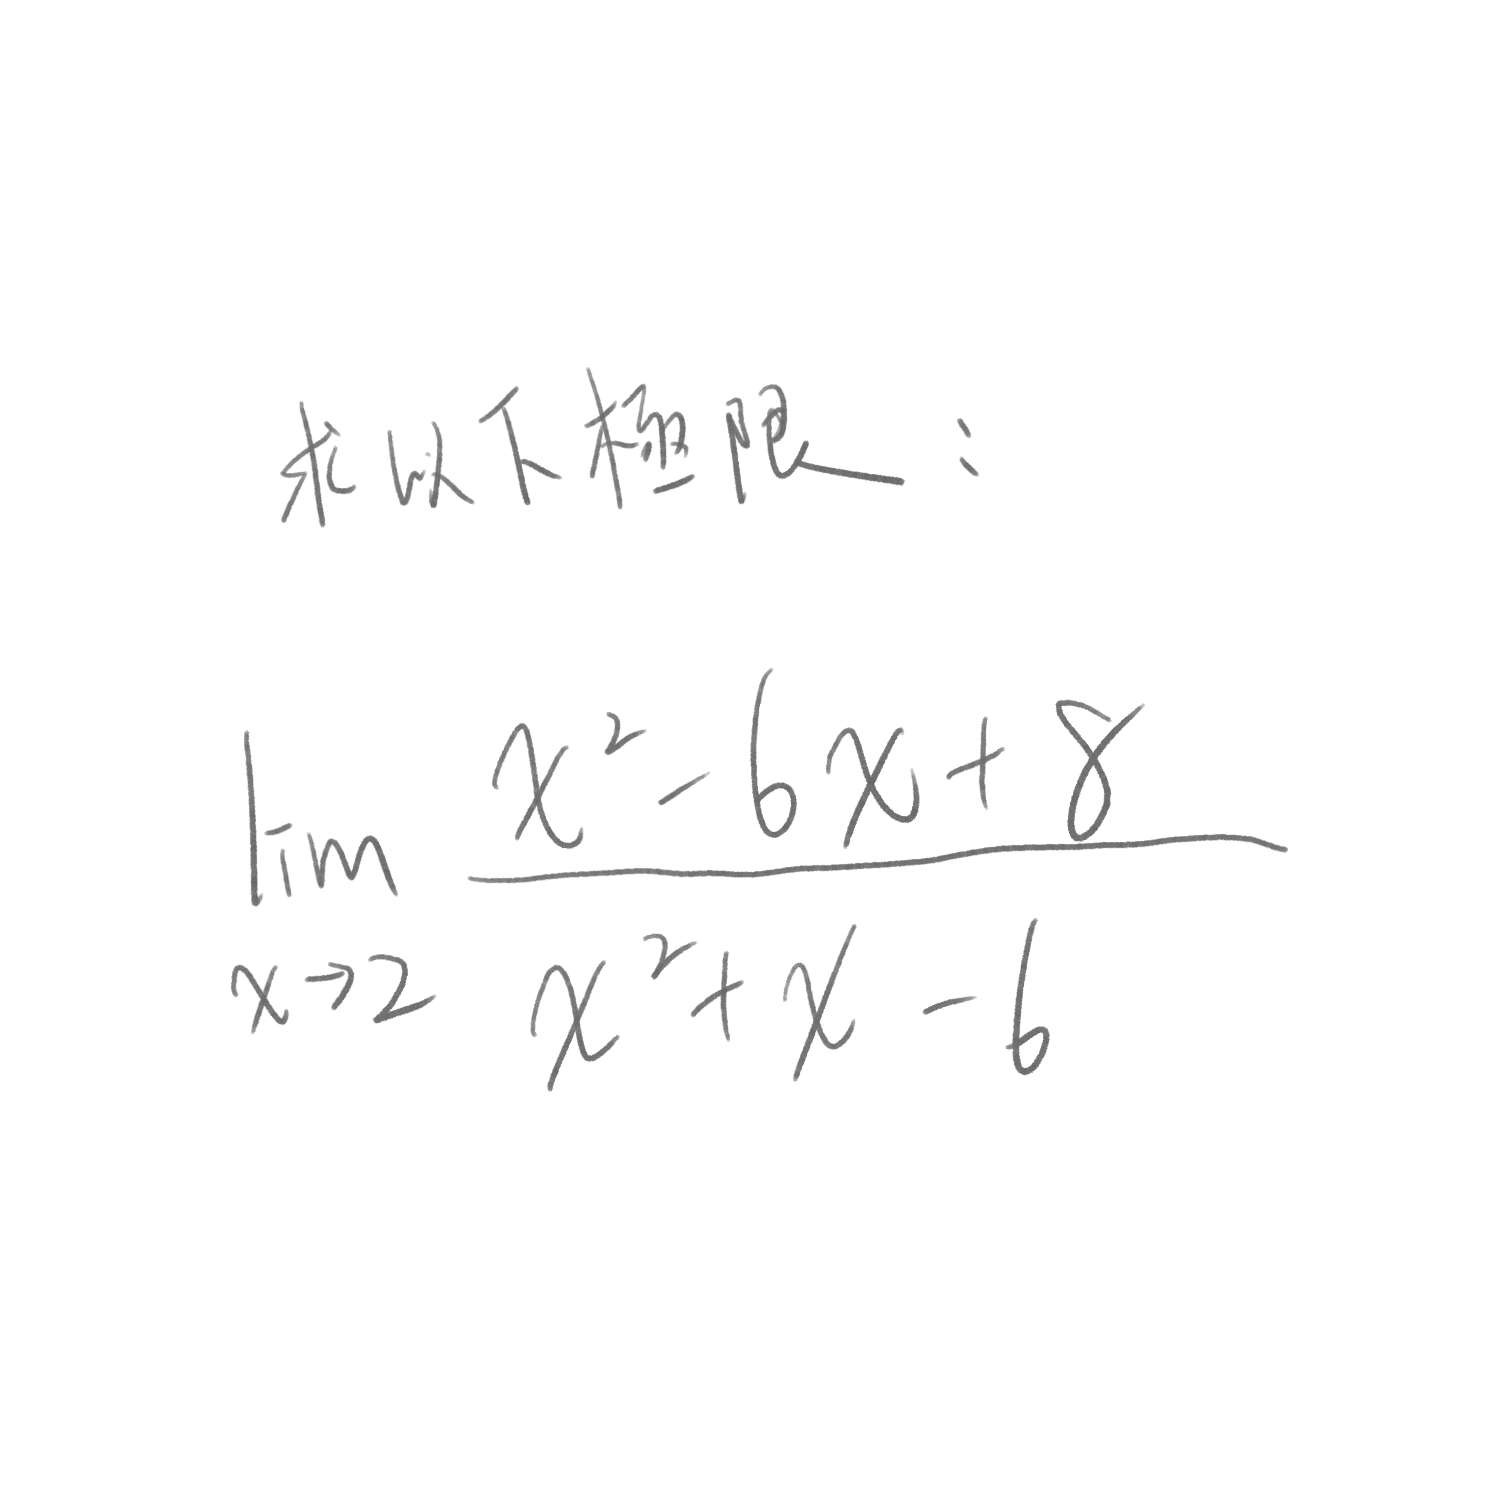 求以下極限：
lim x→2 (x² - 6x + 8) / (x² + x - 6)